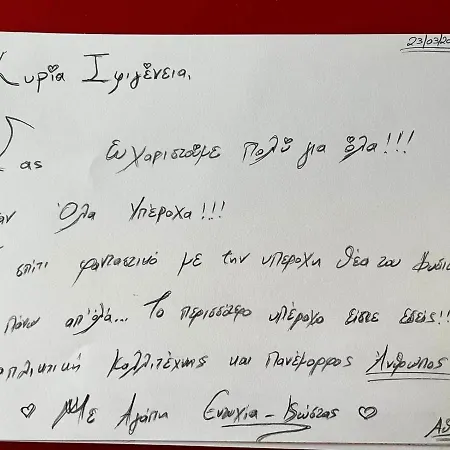 23/03/20
Κυρία Ιφιγένεια,
Σας Ευχαριστούμε πολύ για όλα!!!
Όλα Υπέροχα!!!
σπίτι φανταστικό με την υπέροχη θέα του
Πάνω απ'όλα... Το περισσότερο υπέροχο είστε εσείς!!
Καλλιτέχνης και Πανέμορφος Άνθρωπος
Με Αγάπη Ευτυχία - Κώστας